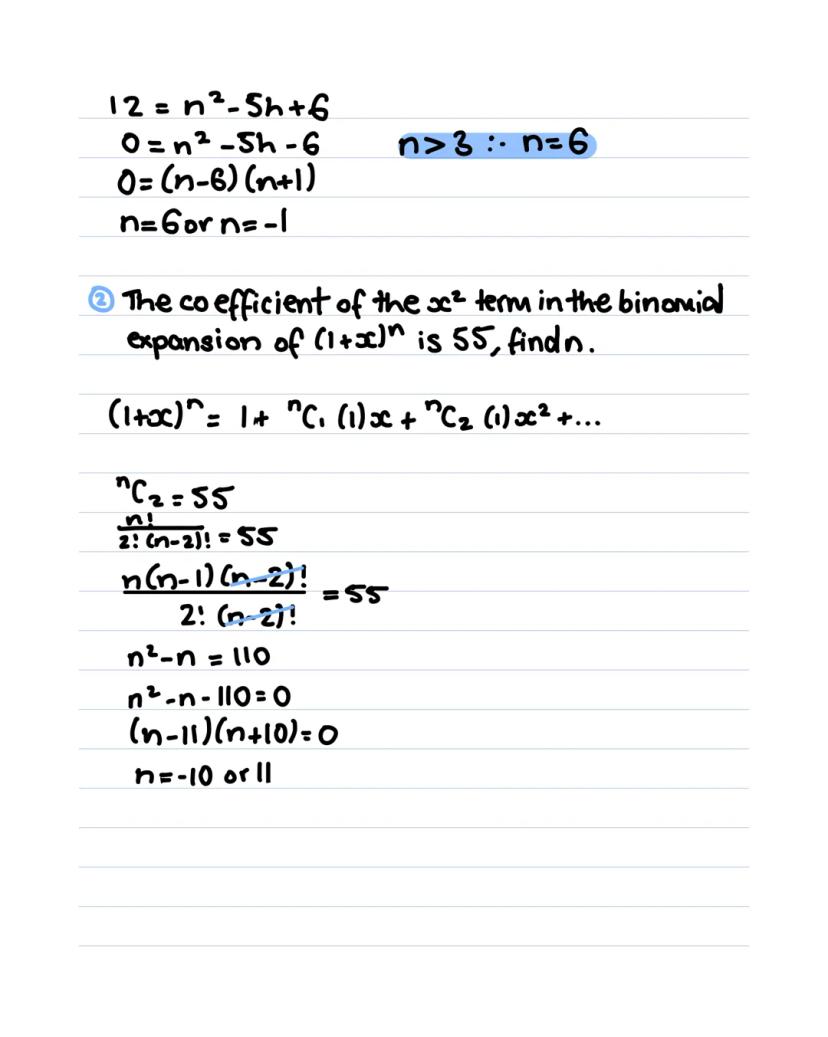 12 = n² - 5n + 6
0 = n² - 5n - 6
n > 3 ∴ n = 6
0 = (n-6)(n+1)
n = 6 or n = -1
② The coefficient of the x² term in the binomial
expansion of (1+x)ⁿ is 55, find n.
(1+x)ⁿ = 1 + ⁿC₁ (1)x + ⁿC₂ (1)x² + ...
ⁿC₂ = 55
n! / 2!(n-2)! = 55
n(n-1)(n-2)! / 2!(n-2)! = 55
n² - n = 110
n² - n - 110 = 0
(n-11)(n+10) = 0
n = -10 or 11